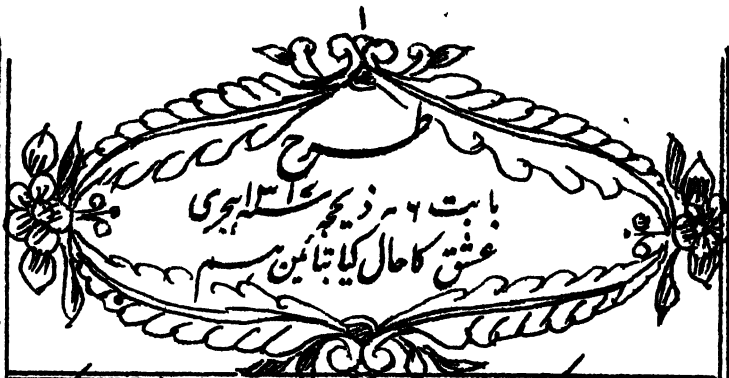 ۱
طرح
بابت ۶ ذیحجہ ۱۳۱۷ ہجری
عشق کا حال کیا بتائیں ہم